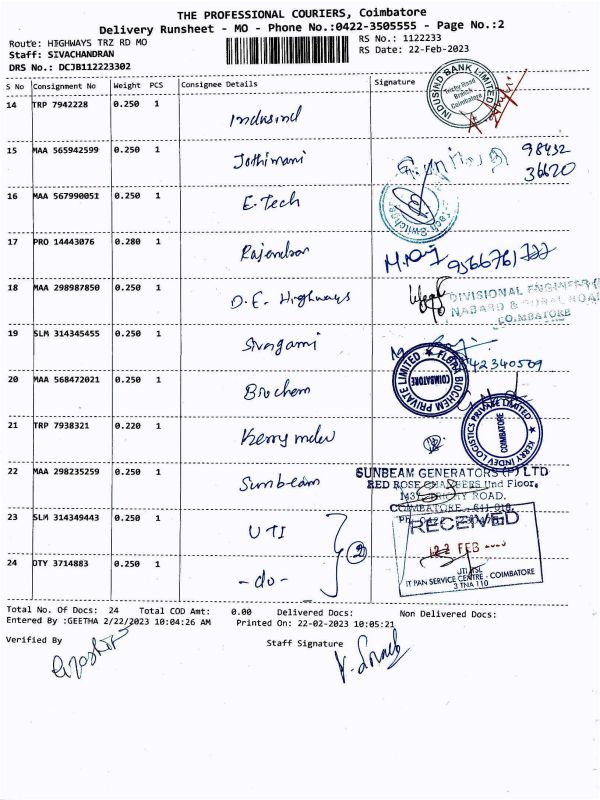 THE PROFESSIONAL COURIERS, Coimbatore
Delivery Runsheet - MO - Phone No.:0422-3505555 - Page No.:2
Route: HIGHWAYS TRZ RD MO RS No.: 1122233
Staff: SIVACHANDRAN RS Date: 22-Feb-2023
DRS No.: DCJB112223302
S No Consignment No Weight PCS Consignee Details Signature
14 TRP 7942228 0.250 1 Indusind
INDUSIND BANK LIMITED
Trichy Road
Branch
Coimbatore
15 MAA 565942599 0.250 1 Jothimani
98432
36620
16 MAA 567990051 0.250 1 E-Tech
Tech Switchge
17 PRO 14443076 0.280 1 Rajendran 9566761722
18 MAA 298987850 0.250 1 D.E. Highways
DIVISIONAL ENGINEER
NABARD & RURAL ROAD
COIMBATORE
19 SLM 314345455 0.250 1 Sivagami
42340509
20 MAA 568472021 0.250 1 Biochem
FLORA BIOCHEM PRIVATE LIMITED
COIMBATORE
21 TRP 7938321 0.220 1 Kerry indev
KERRY INDEV LOGISTICS PRIVATE LIMITED
COIMBATORE
22 MAA 298235259 0.250 1 Sunbeam
SUNBEAM GENERATORS (P) LTD
RED ROSE CHAMBERS IInd Floor,
ROAD.
COIMBATORE - 641 018.
23 SLM 314349443 0.250 1 UTI
RECEIVED
22 FEB
24 DTY 3714883 0.250 1 -do- 2
IT PAN SERVICE CENTRE - COIMBATORE
3 TNA 110
Total No. Of Docs: 24 Total COD Amt: 0.00 Delivered Docs: Non Delivered Docs:
Entered By :GEETHA 2/22/2023 10:04:26 AM Printed On: 22-02-2023 10:05:21
Verified By Staff Signature